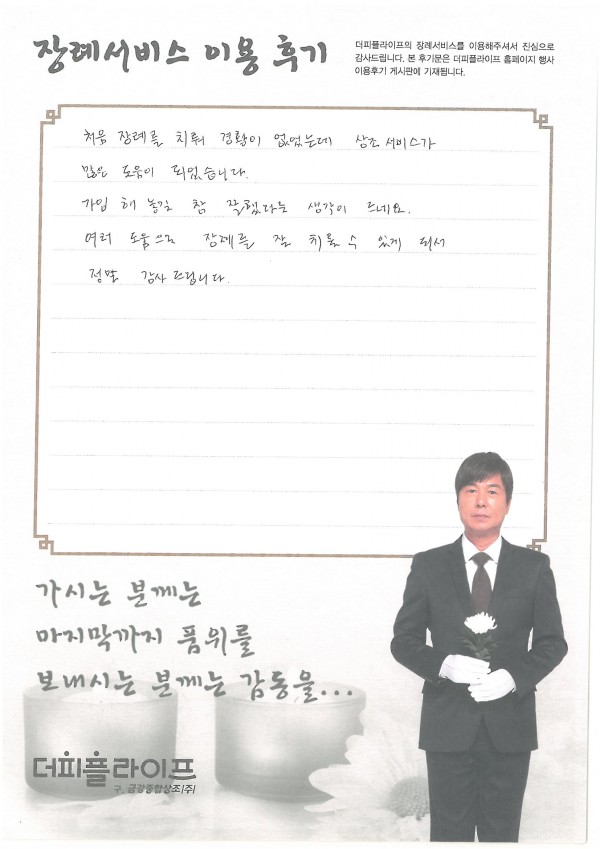 장례서비스 이용 후기
더피플라이프의 장례서비스를 이용해주셔서 진심으로
감사드립니다. 본 후기문은 더피플라이프 홈페이지 행사
이용후기 게시판에 기재됩니다.
처음 장례를 치뤄 경황이 없었는데 상조서비스가
많은 도움이 되었습니다.
가입 해 놓길 참 잘했다는 생각이 드네요.
여러 도움으로 장례를 잘 치룰 수 있게 되서
정말 감사드립니다.
가시는 분께는
마지막까지 품위를
보내시는 분께는 감동을...
더피플라이프
구. 금강종합상조(주)